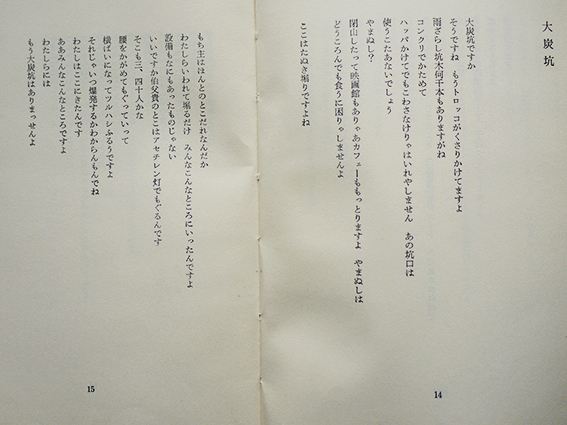 大炭坑
大炭坑ですか
そうですね　もうトロッコがくさりかけてますよ
雨ざらし坑木何千本もありますがね
コンクリでかためて
ハッパかけてでもこわさなけりゃはいれやしません　あの坑口は
使うこたあないでしょう
やまぬし？
閉山したって映画館もありゃあカフェーももっとりますよ　やまぬしは
どうころんでも食うに困りゃしませんよ
ここはたぬき掘りですよね
14
もち主はほんとのとこだれなんだか
わたしらいわれて掘るだけ　みんなこんなところにいったんですよ
設備もなにもあったものじゃない
いいですか伯父貴のとこはアセチレン灯でもぐるんです
そこも三、四十人かな
腰をかがめてもぐっていって
横ばいになってツルハシふるうですよ
それじゃいつ爆発するかわからんもんでね
わたしはここにきたんです
ああみんなこんなところですよ
わたしらには
もう大炭坑はありまっせんよ
15